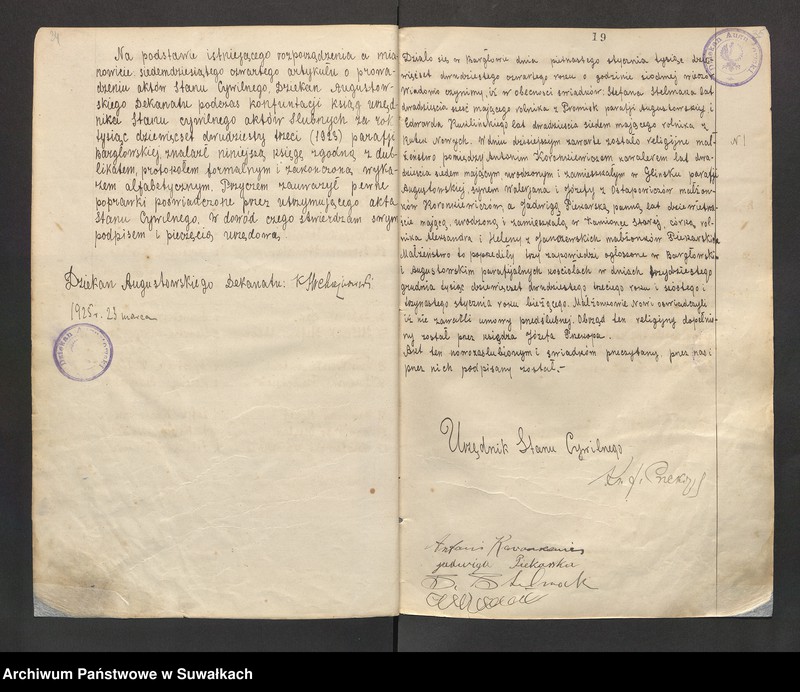 Na podstawie istniejącego rozporządzenia a mia
nowicie siedemdziesiątego czwartego artykułu o prowa
dzeniu aktów Stanu Cywilnego, Dziekan Augustow-
skiego Dekanatu podczas konfrontacji ksiąg urzęd
nika Stanu cywilnego aktów ślubnych za rok
tysiąc dziewięćset dwudziesty trzeci (1923) parafji
Bargłowskiej, znalazł niniejszą księgę zgodną z du-
blikatem, protokołem formalnym i zakończoną wyka-
zem alfabetycznym. Przyczem zauważył pewne
poprawki poświadczone przez utrzymującego akta
Stanu Cywilnego. W dowód czego stwierdzam swym
podpisem i pieczęcią urzędową
Dziekan Augustowskiego Dekanatu:
1925 r. 23 marca
Dziekan Augustowski
19
Dziekan Augustowski
N 1
Działo się w Bargłowie dnia piętnastego stycznia tysiąc dzie-
więćset dwudziestego czwartego roku o godzinie siódmej wieczór.
Wiadomo czynimy, iż w obecności świadków: Stefana Stelmaka lat
dwadzieścia sześć mającego rolnika z Promisk parafji Augustowskiej i
Edwarda lat dwadzieścia siedem mającego rolnika z
Rutek Nowych. W dniu dzisiejszym zawarte zostało religijne mał-
żeństwo pomiędzy Antonim kawalerem lat dwa-
dzieścia siedem mającym, urodzonym i zamieszkałym w Glinsku parafji
Augustowskiej, synem Walerjana i Józefy z Ostapowiczów małżon-
ków a Jadwigą Piekarską, panną lat dziewiętna-
ście mającą, urodzoną i zamieszkałą w Kamionce Starej, córką rol-
nika Aleksandra i Heleny z małżonków Piekarskich
Małżeństwo to poprzedziły trzy zapowiedzi ogłoszone w Bargłowskim
i Augustowskim parafjalnych kościołach w dniach trzydziestego
grudnia tysiąc dziewięćset dwudziestego trzeciego roku i szóstego i
trzynastego stycznia roku bieżącego. Małżonkowie Nowi oświadczyli
iż nie zawarli umowy przedślubnej. Obrzęd ten religijny dopełnio-
ny został przez księdza Józefa
Akt ten nowozaślubionym i świadkom przeczytany, przez nas i
przez nich podpisany został.-
Urzędnik Stanu Cywilnego
Antoni
Jadwiga Piekarska
Stelmak
Archiwum Państwowe w Suwałkach